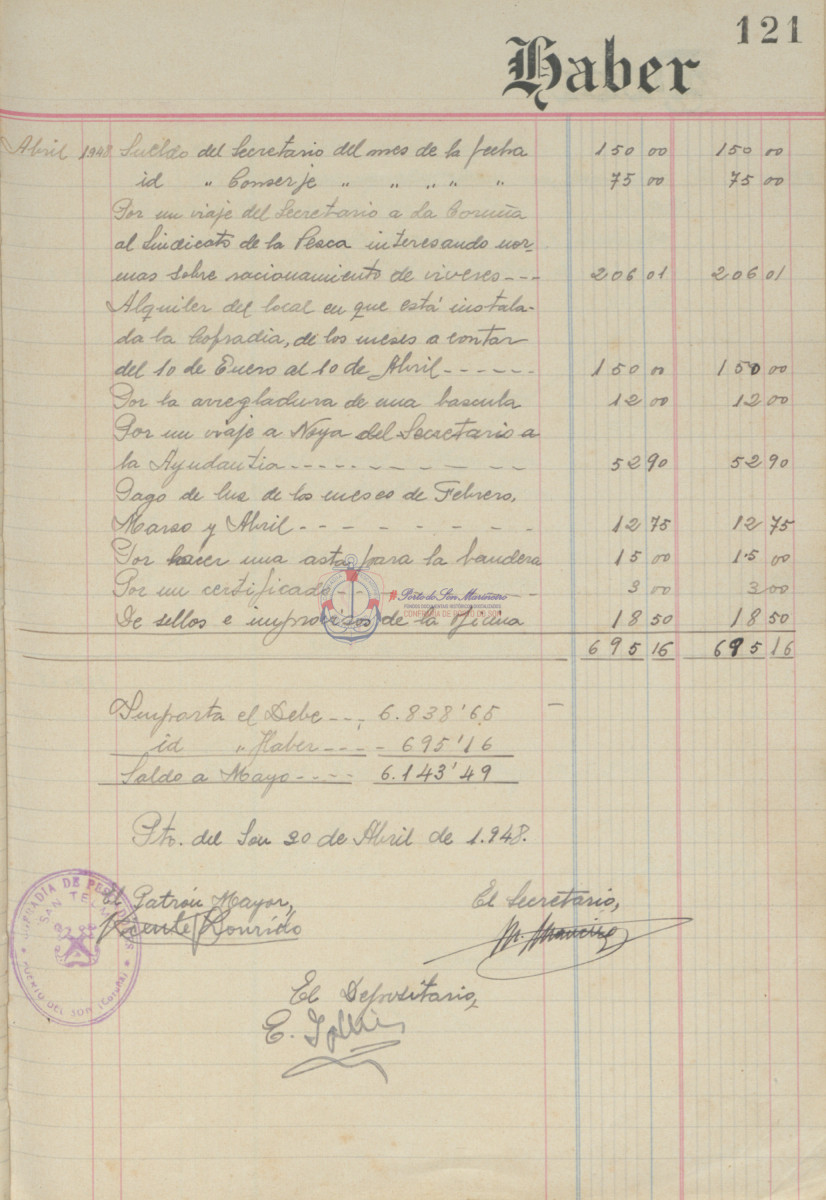 121
Haber
Abril 1948 Sueldo del Secretario del mes de la fecha 150 00 150 00
id " Conserje " " " " " 75 00 75 00
Por un viaje del Secretario a La Coruña
al Sindicato de la Pesca interesando nor-
mas sobre racionamiento de viveres --- 206 01 206 01
Alquiler del local en que está instala-
da la Cofradia, de los meses a contar
del 10 de Enero al 10 de Abril ------ 150 00 150 00
Por la arregladura de una bascula 12 00 12 00
Por un viaje a Noya del Secretario a
la Ayudantia --------- 52 90 52 90
Pago de luz de los meses de Febrero,
Marzo y Abril -------- 12 75 12 75
Por hacer una asta para la bandera 15 00 15 00
Por un certificado ------ 3 00 3 00
De sellos e improvisos de la oficina 18 50 18 50
695 16 695 16
Porto do Son Mariñeiro
Importa el Debe --- 6.838'65 -
id " Haber ---- 695'16
Saldo a Mayo ---- 6.143'49
Pto. del Son 30 de Abril de 1.948.
El Patrón Mayor, El Secretario,
El Depositario,
COFRADIA DE PESCADORES
SAN TELMO
PUERTO DEL SON (Coruña)